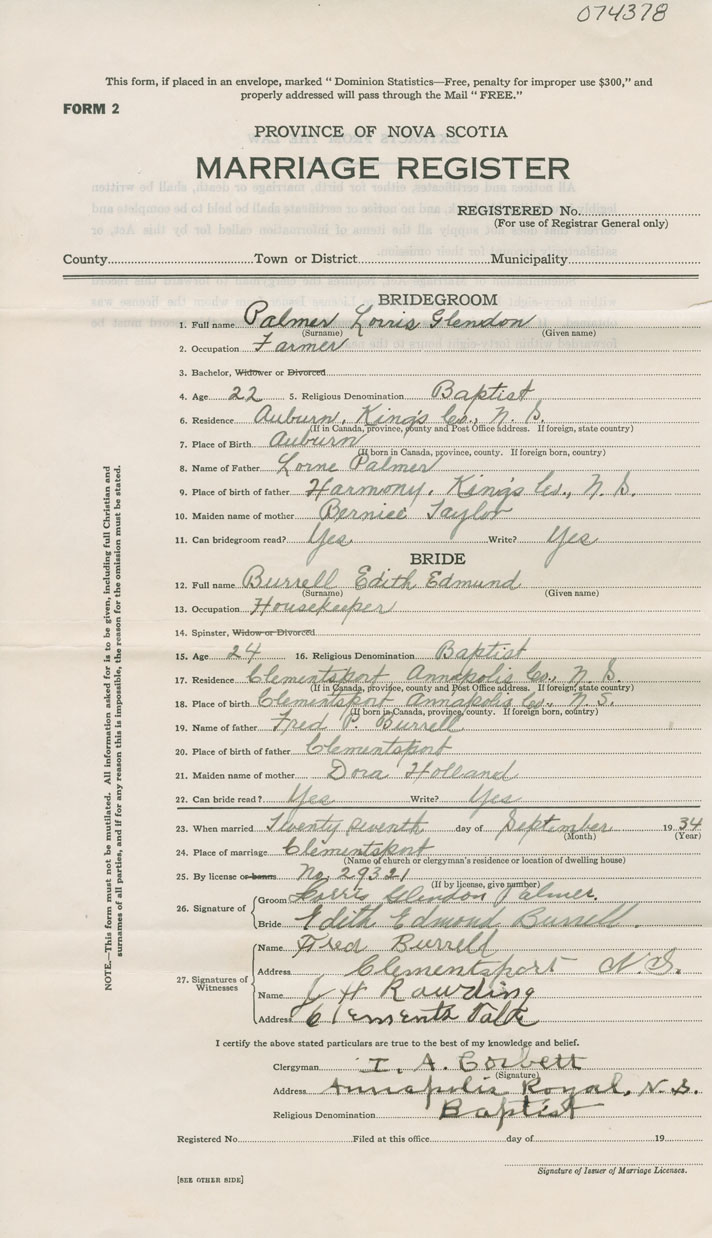 074378
This form, if placed in an envelope, marked " Dominion Statistics—Free, penalty for improper use $300," and
properly addressed will pass through the Mail " FREE."
FORM 2
PROVINCE OF NOVA SCOTIA
MARRIAGE REGISTER
REGISTERED No.
(For use of Registrar General only)
County Town or District Municipality
BRIDEGROOM
1. Full name Palmer Lorris Glendon
(Surname) (Given name)
2. Occupation Farmer
3. Bachelor, Widower or Divorced
4. Age 22 5. Religious Denomination Baptist
6. Residence Auburn, Kings Co., N. S.
(If in Canada, province, county and Post Office address. If foreign, state country)
7. Place of Birth Auburn
(If born in Canada, province, county. If foreign born, country)
8. Name of Father Lorne Palmer
9. Place of birth of father Harmony, Kings Co., N. S.
10. Maiden name of mother Bernice Taylor
11. Can bridegroom read? Yes Write? Yes
BRIDE
12. Full name Burrell Edith Edmund
(Surname) (Given name)
13. Occupation Housekeeper
14. Spinster, Widow or Divorced
15. Age 24 16. Religious Denomination Baptist
17. Residence Clementsport Annapolis Co., N. S.
(If in Canada, province, county and Post Office address. If foreign, state country)
18. Place of birth Clementsport Annapolis Co., N. S.
(If born in Canada, province, county. If foreign born, country)
19. Name of father Fred P. Burrell
20. Place of birth of father Clementsport
21. Maiden name of mother Dora Holland
22. Can bride read? Yes Write? Yes
23. When married Twenty seventh day of September 1934
(Month) (Year)
24. Place of marriage Clementsport
(Name of church or clergyman's residence or location of dwelling house)
25. By license or banns No. 29321
(If by license, give number)
26. Signature of Groom Lorris Glendon Palmer.
Bride Edith Edmond Burrell.
27. Signatures of Witnesses
Name Fred Burrell
Address Clementsport N.S.
Name H Rawding
Address Clements Vale
I certify the above stated particulars are true to the best of my knowledge and belief.
Clergyman I. A. Corbett
(Signature)
Address Annapolis Royal, N. S.
Religious Denomination Baptist
Registered No. Filed at this office day of 19
Signature of Issuer of Marriage Licenses.
[SEE OTHER SIDE]
NOTE.—This form must not be mutilated. All information asked for is to be given, including full Christian and
surnames of all parties, and if for any reason this is impossible, the reason for the omission must be stated.